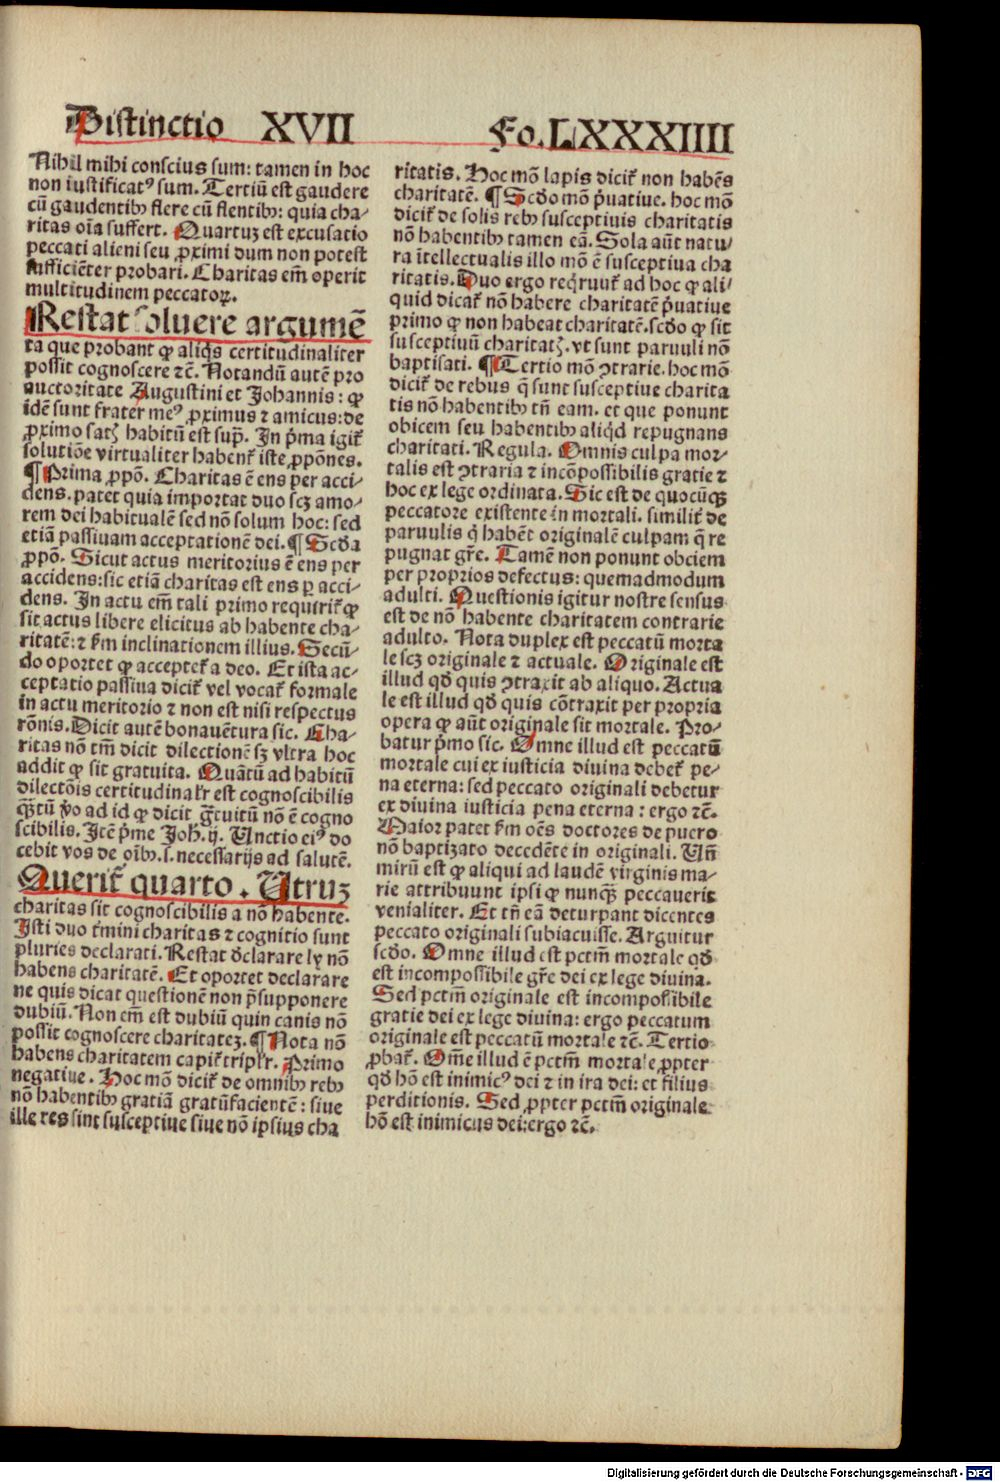 Distinctio XVII Fo. LXXXIIII
Nihil mihi conscius sum: tamen in hoc
non iustificatꝰ sum. Tertiū est gaudere
cū gaudentibꝫ flere cū flentibꝫ: quia cha/
ritas oīa suffert. Quartuꝫ est excusatio
peccati alieni seu ꝓximi dum non potest
sufficiēter probari. Charitas em̄ operit
multitudinem peccatoꝝ.
Restat soluere argumē
ta que probant ꝙ aliq̇s certitudinaliter
possit cognoscere ⁊c̄. Notandū autē pro
auctoritate Augustini et Johannis: ꝙ
idē sunt frater meꝰ ꝓximus ⁊ amicus: de
ꝓximo satꝭ habitū est sup̄. In p̄ma igit᷑
solutiōe virtualiter habent᷑ iste ꝓpōnes.
¶ Prima ꝓpō. Charitas ē ens per acci/
dens. patet quia importat duo scꝫ amo/
rem dei habitualē sed nō solum hoc: sed
etiā passiuam acceptationē dei. ¶ Scd̄a
ꝓpō. Sicut actus meritorius ē ens per
accidens: sic etiā charitas est ens ꝑ acci/
dens. In actu em̄ tali primo requirit᷑ ꝙ
sit actus libere elicitus ab habente cha/
ritatē: ⁊ ẜm inclinationem illius. Secū/
do oportet ꝙ acceptet᷑ a deo. Et ista ac/
ceptatio passiua dicit᷑ vel vocat᷑ formale
in actu meritorio ⁊ non est nisi respectus
rōnis. Dicit autē bonauētura sic. Cha/
ritas nō tm̄ dicit dilectionē sꝫ vltra hoc
addit ꝙ sit gratuita. Quātū ad habitū
dilectōis certitudinalr̄ est cognoscibilis
qꝫtū v̊o ad id ꝙ dicit gr̄tuitū nō ē cogno
scibilis. Itē p̄me Joh̄. ij. Unctio eiꝰ do
cebit vos de oībꝫ .s. necessarijs ad salutē.
Querit᷑ quarto. Utruꝫ
charitas sit cognoscibilis a nō habente.
Isti duo t̄mini charitas ⁊ cognitio sunt
pluries declarati. Restat d̄clarare ly nō
habens charitatē. Et oportet declarare
ne quis dicat questionē non p̄supponere
dubiū. Non em̄ est dubiū quin canis nō
possit cognoscere charitateꝫ. ¶ Nota nō
habens charitatem capit᷑ triplr̄. Primo
negatiue. Hoc mō dicit᷑ de omnibꝫ rebꝫ
nō habentibꝫ gratiā gratūfacientē: siue
ille res sint susceptiue siue nō ipsius cha
ritatis. Hoc mō lapis dicit᷑ non habēs
charitatē. ¶ Scd̄o mō p̄uatiue. hoc mō
dicit᷑ de solis rebꝫ susceptiuis charitatis
nō habentibꝫ tamen eā. Sola aūt natu/
ra ītellectualis illo mō ē susceptiua cha
ritatis. Duo ergo req̇runt᷑ ad hoc ꝙ ali/
quid dicat᷑ nō habere charitatē p̄uatiue
primo ꝙ non habeat charitatē. scd̄o ꝙ sit
susceptiuū charitatꝭ. vt sunt paruuli nō
baptisati. ¶ Tertio mō ↄtrarie. hoc mō
dicit᷑ de rebus q̄ sunt susceptiue charita
tis nō habentibꝫ tn̄ eam. et que ponunt
obicem seu habentibꝫ aliq̇d repugnans
charitati. Regula. Omnis culpa mor/
talis est ↄtraria ⁊ incōpossibilis gratie ⁊
hoc ex lege ordinata. Sic est de quocūqꝫ
peccatore existente in mortali. similit᷑ de
paruulis q̇ habēt originalē culpam q̄ re
pugnat gr̄e. Tamē non ponunt obicem
per proprios defectus: quemadmodum
adulti. Questionis igitur nostre sensus
est de nō habente charitatem contrarie
adulto. Nota duplex est peccatū morta
le scꝫ originale ⁊ actuale. Originale est
illud qd̄ quis ↄtraxit ab aliquo. Actua
le est illud qd̄ quis cōtraxit per propria
opera ꝙ aūt originale sit mortale. Pro/
batur p̄mo sic. Omne illud est peccatū
mortale cui ex iusticia diuina debet᷑ pe/
na eterna: sed peccato originali debetur
ex diuina iusticia pena eterna: ergo ⁊c̄.
Maior patet ẜm oēs doctores de puero
nō baptizato decedēte in originali. Un̄
mirū est ꝙ aliqui ad laudē virginis ma/
rie attribuunt ipsi ꝙ nunqꝫ peccauerit
venialiter. Et tn̄ eā deturpant dicentes
peccato originali subiacuisse. Arguitur
scd̄o. Omne illud est pctm̄ mortale qd̄
est incompossibile gr̄e dei ex lege diuina.
Sed pctm̄ originale est incompossibile
gratie dei ex lege diuina: ergo peccatum
originale est peccatū mortale ⁊c̄. Tertio
ꝓbat᷑. Om̄e illud ē pctm̄ mortale ꝓpter
qd̄ hō est inimicꝰ dei ⁊ in ira dei: et filius
perditionis. Sed ꝓpter pctm̄ originale
hō est inimicus dei: ergo ⁊c̄.
Digitalisierung gefördert durch die Deutsche Forschungsgemeinschaft - DFG